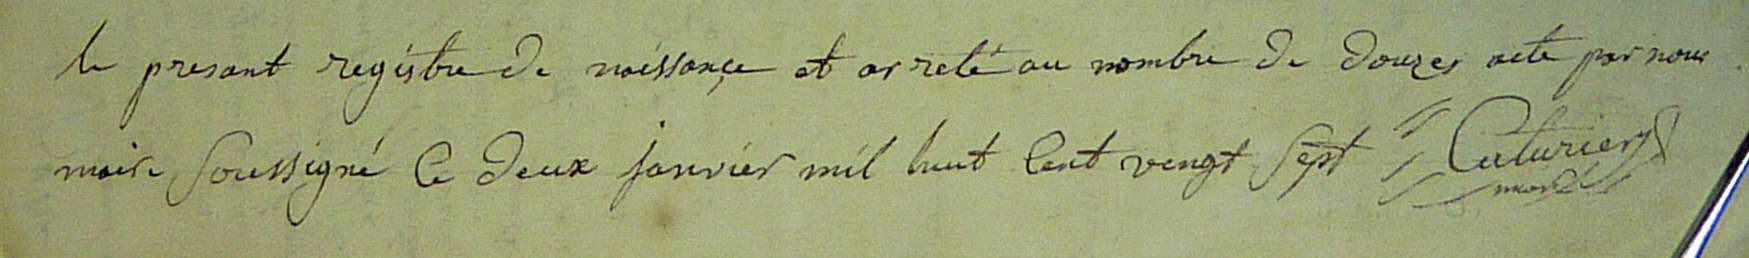 le presant registre de naissançe et arreté au nombre de douzes acte par nous
maire soussigné le deux janvier mil huit cent vengt sept